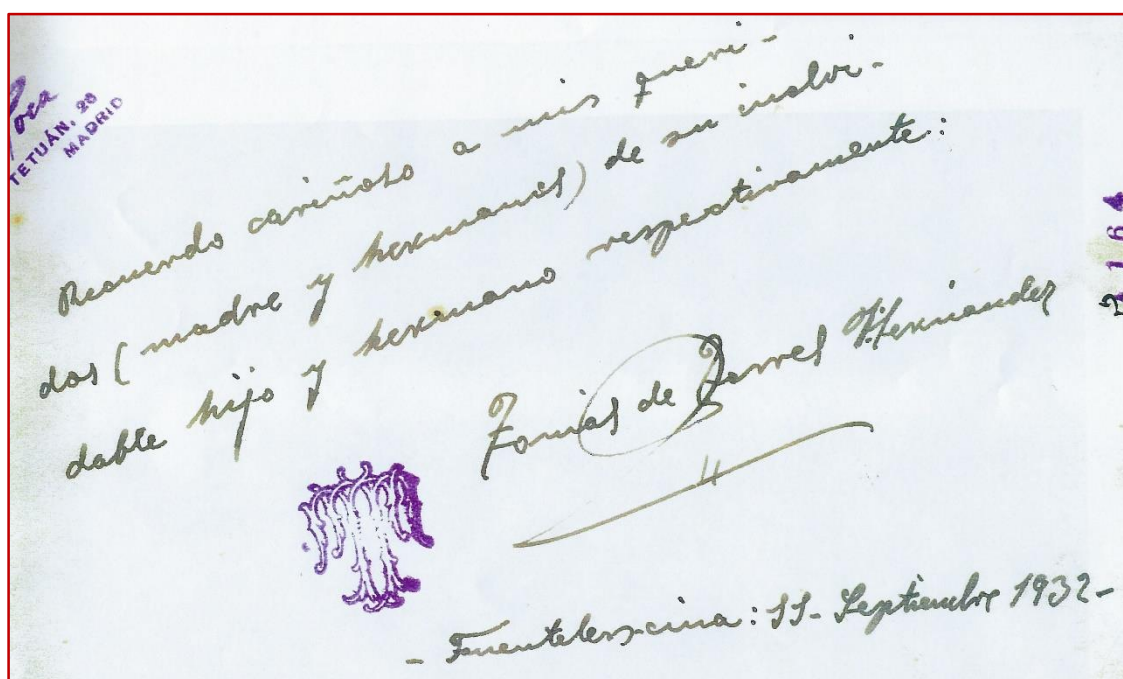 Roca
TETUÁN, 20
MADRID
Recuerdo cariñoso a mis queri-
dos (madre y hermanos) de su inolvi-
dable hijo y hermano respectivamente:
Tomás de Torres Hernández
- Fuentelencina: 11- Septiembre 1932-